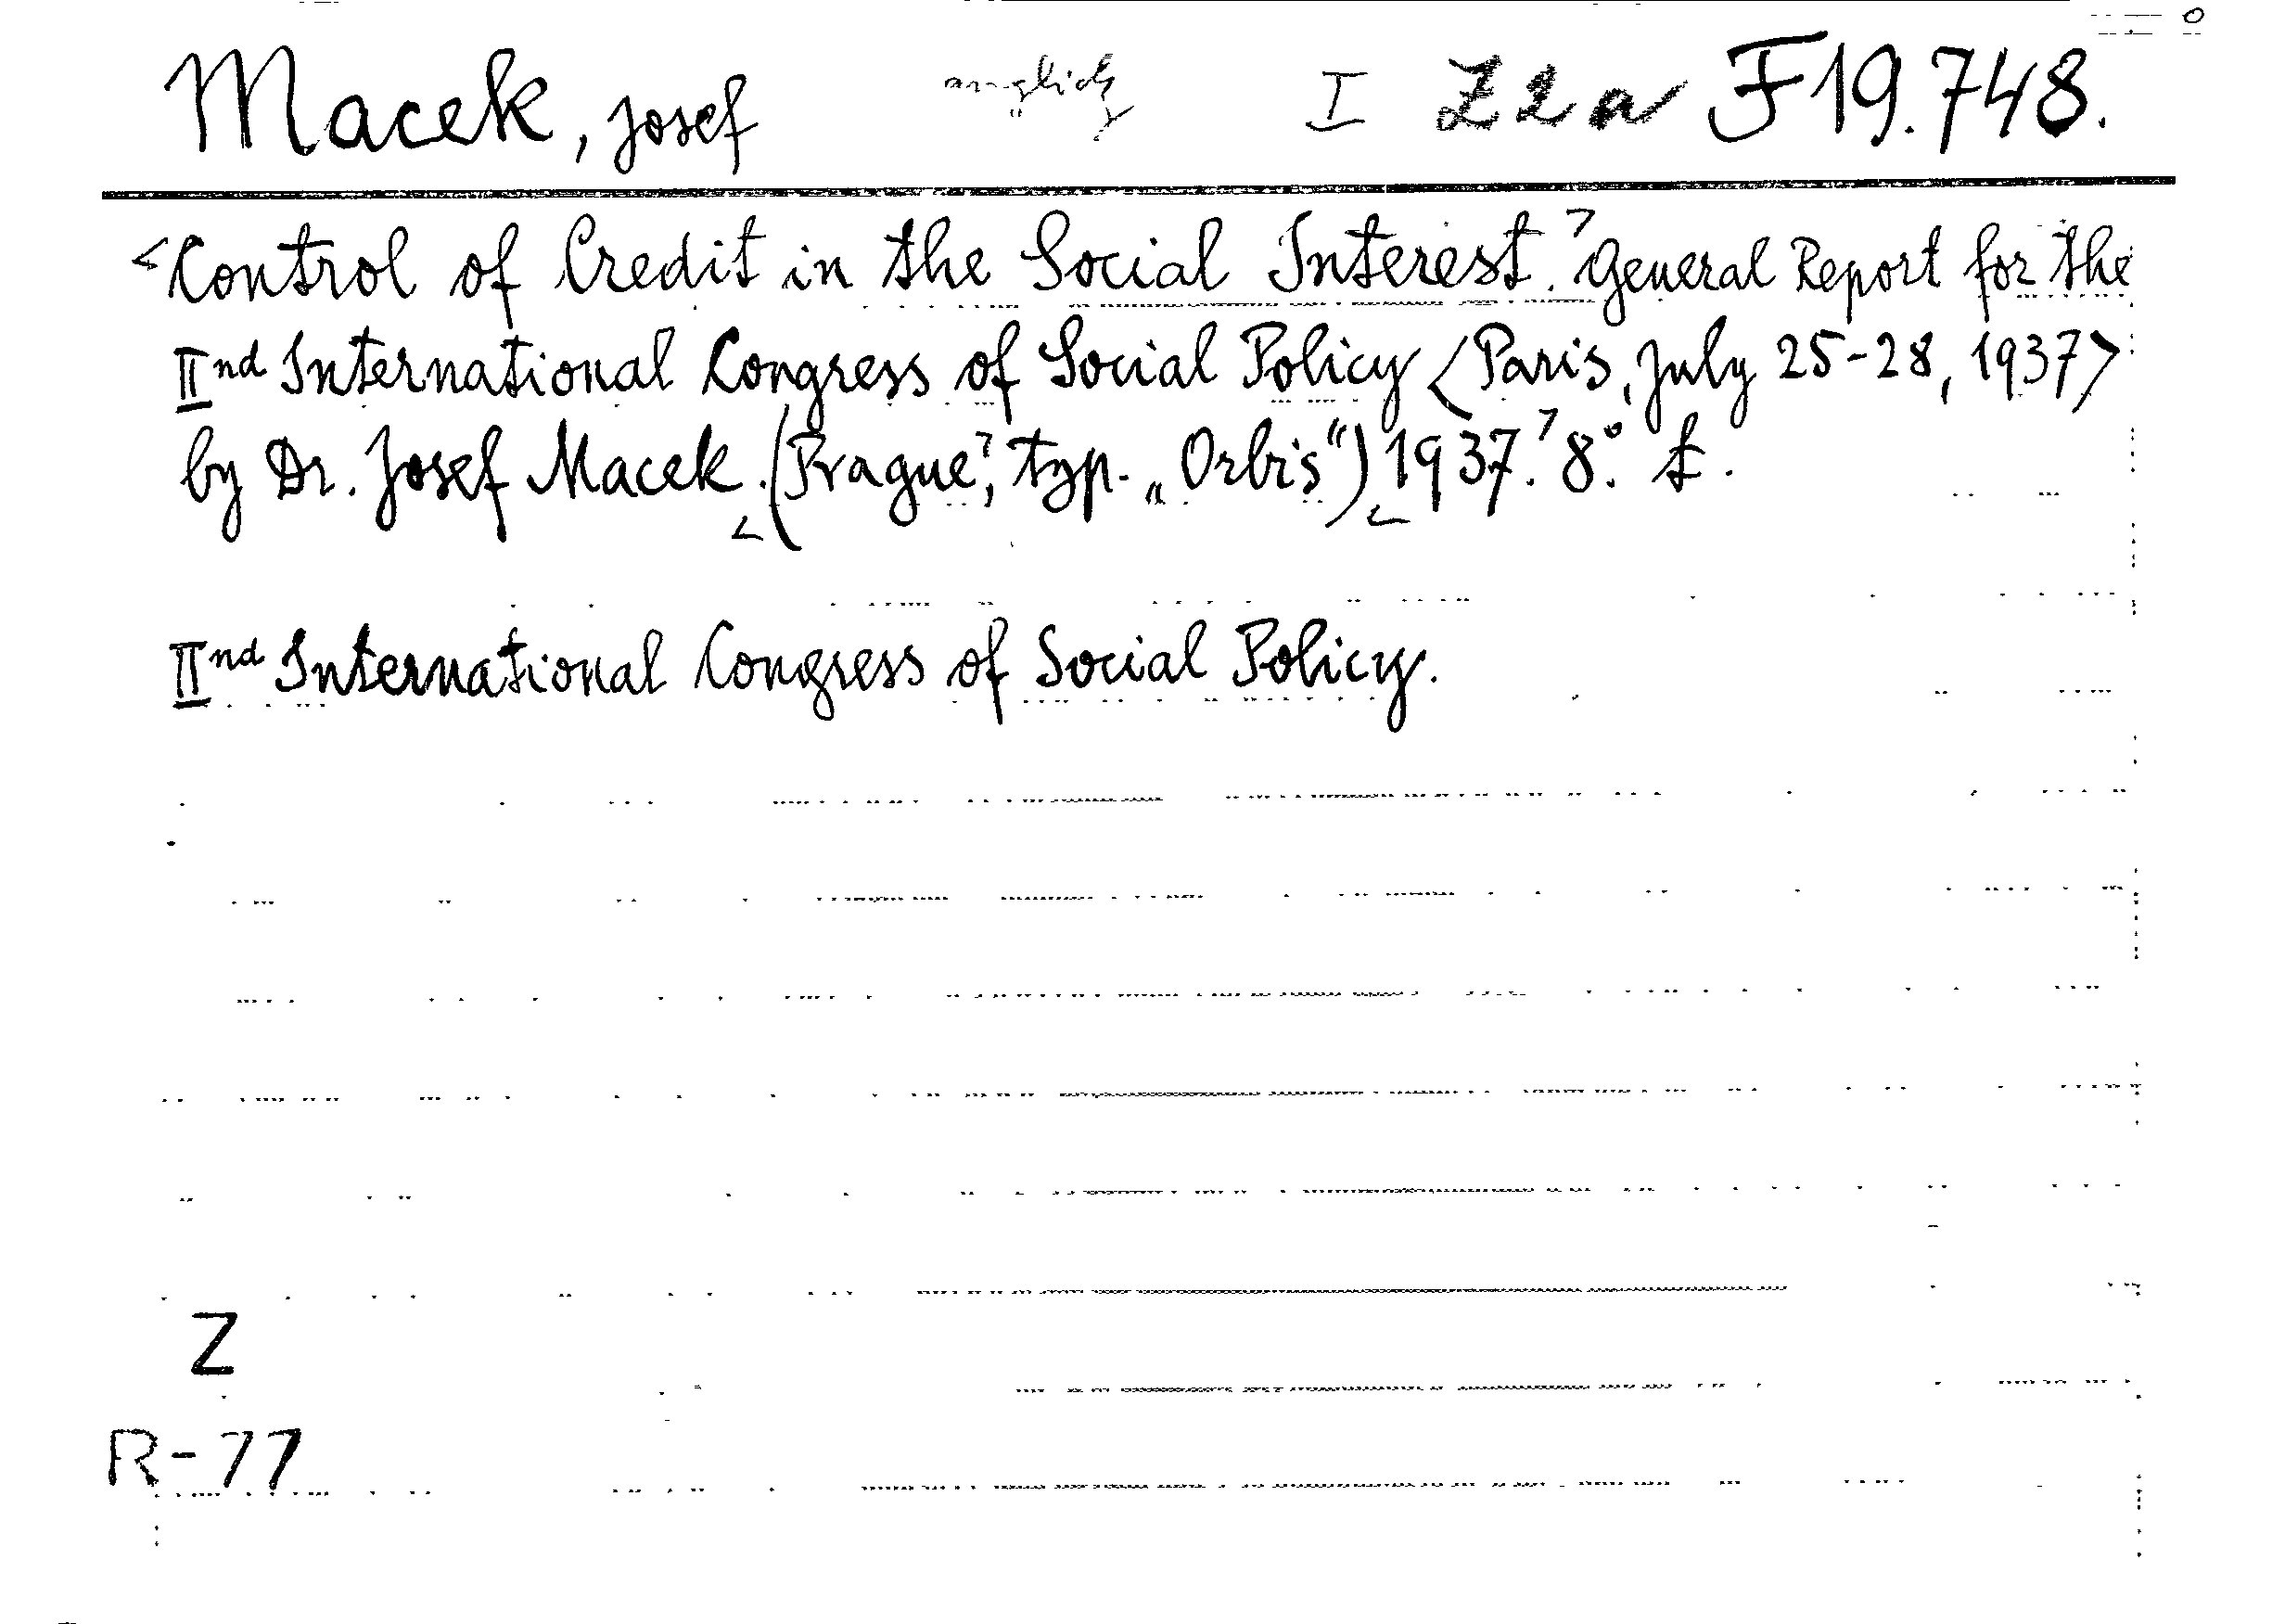 Macek, Josef I Z2a F 19.748.
<Control of Credit in the Social Interest.> General Report for the
IInd International Congress of Social Policy <Paris, July 25-28, 1937>
by Dr. Josef Macek. <(Prague>, typ. „Orbis“) <1937.> 8°. £.
IInd International Congress of Social Policy.
Z
R-77